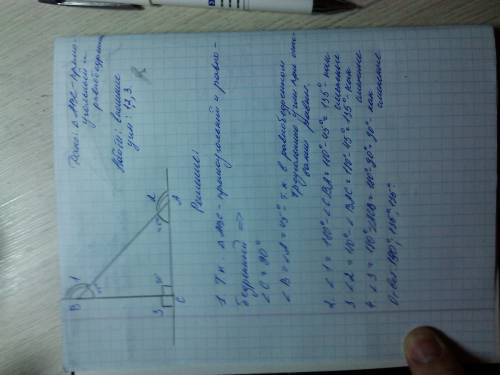 Дано: △ABC - прямо-
угольный и
равнобедренный
Найти: внешние
углы: 1, 2, 3.
B
1
2
A
3
C
Решение:
1. Т.к. △ABC - прямоугольный и равно-
бедренный =>
∠C = 90°
∠B = ∠A = 45° - т.к. в равнобедренном
треугольнике углы при осно-
вании равны.
2. ∠1 = 180° - ∠CBA = 180° - 45° = 135° - как
смежные
3. ∠2 = 180° - ∠BAC = 180° - 45° = 135° - как
смежные
4. ∠3 = 180° - ∠ACB = 180° - 90° = 90° - как
смежные
Ответ: 90°; 135°; 135°